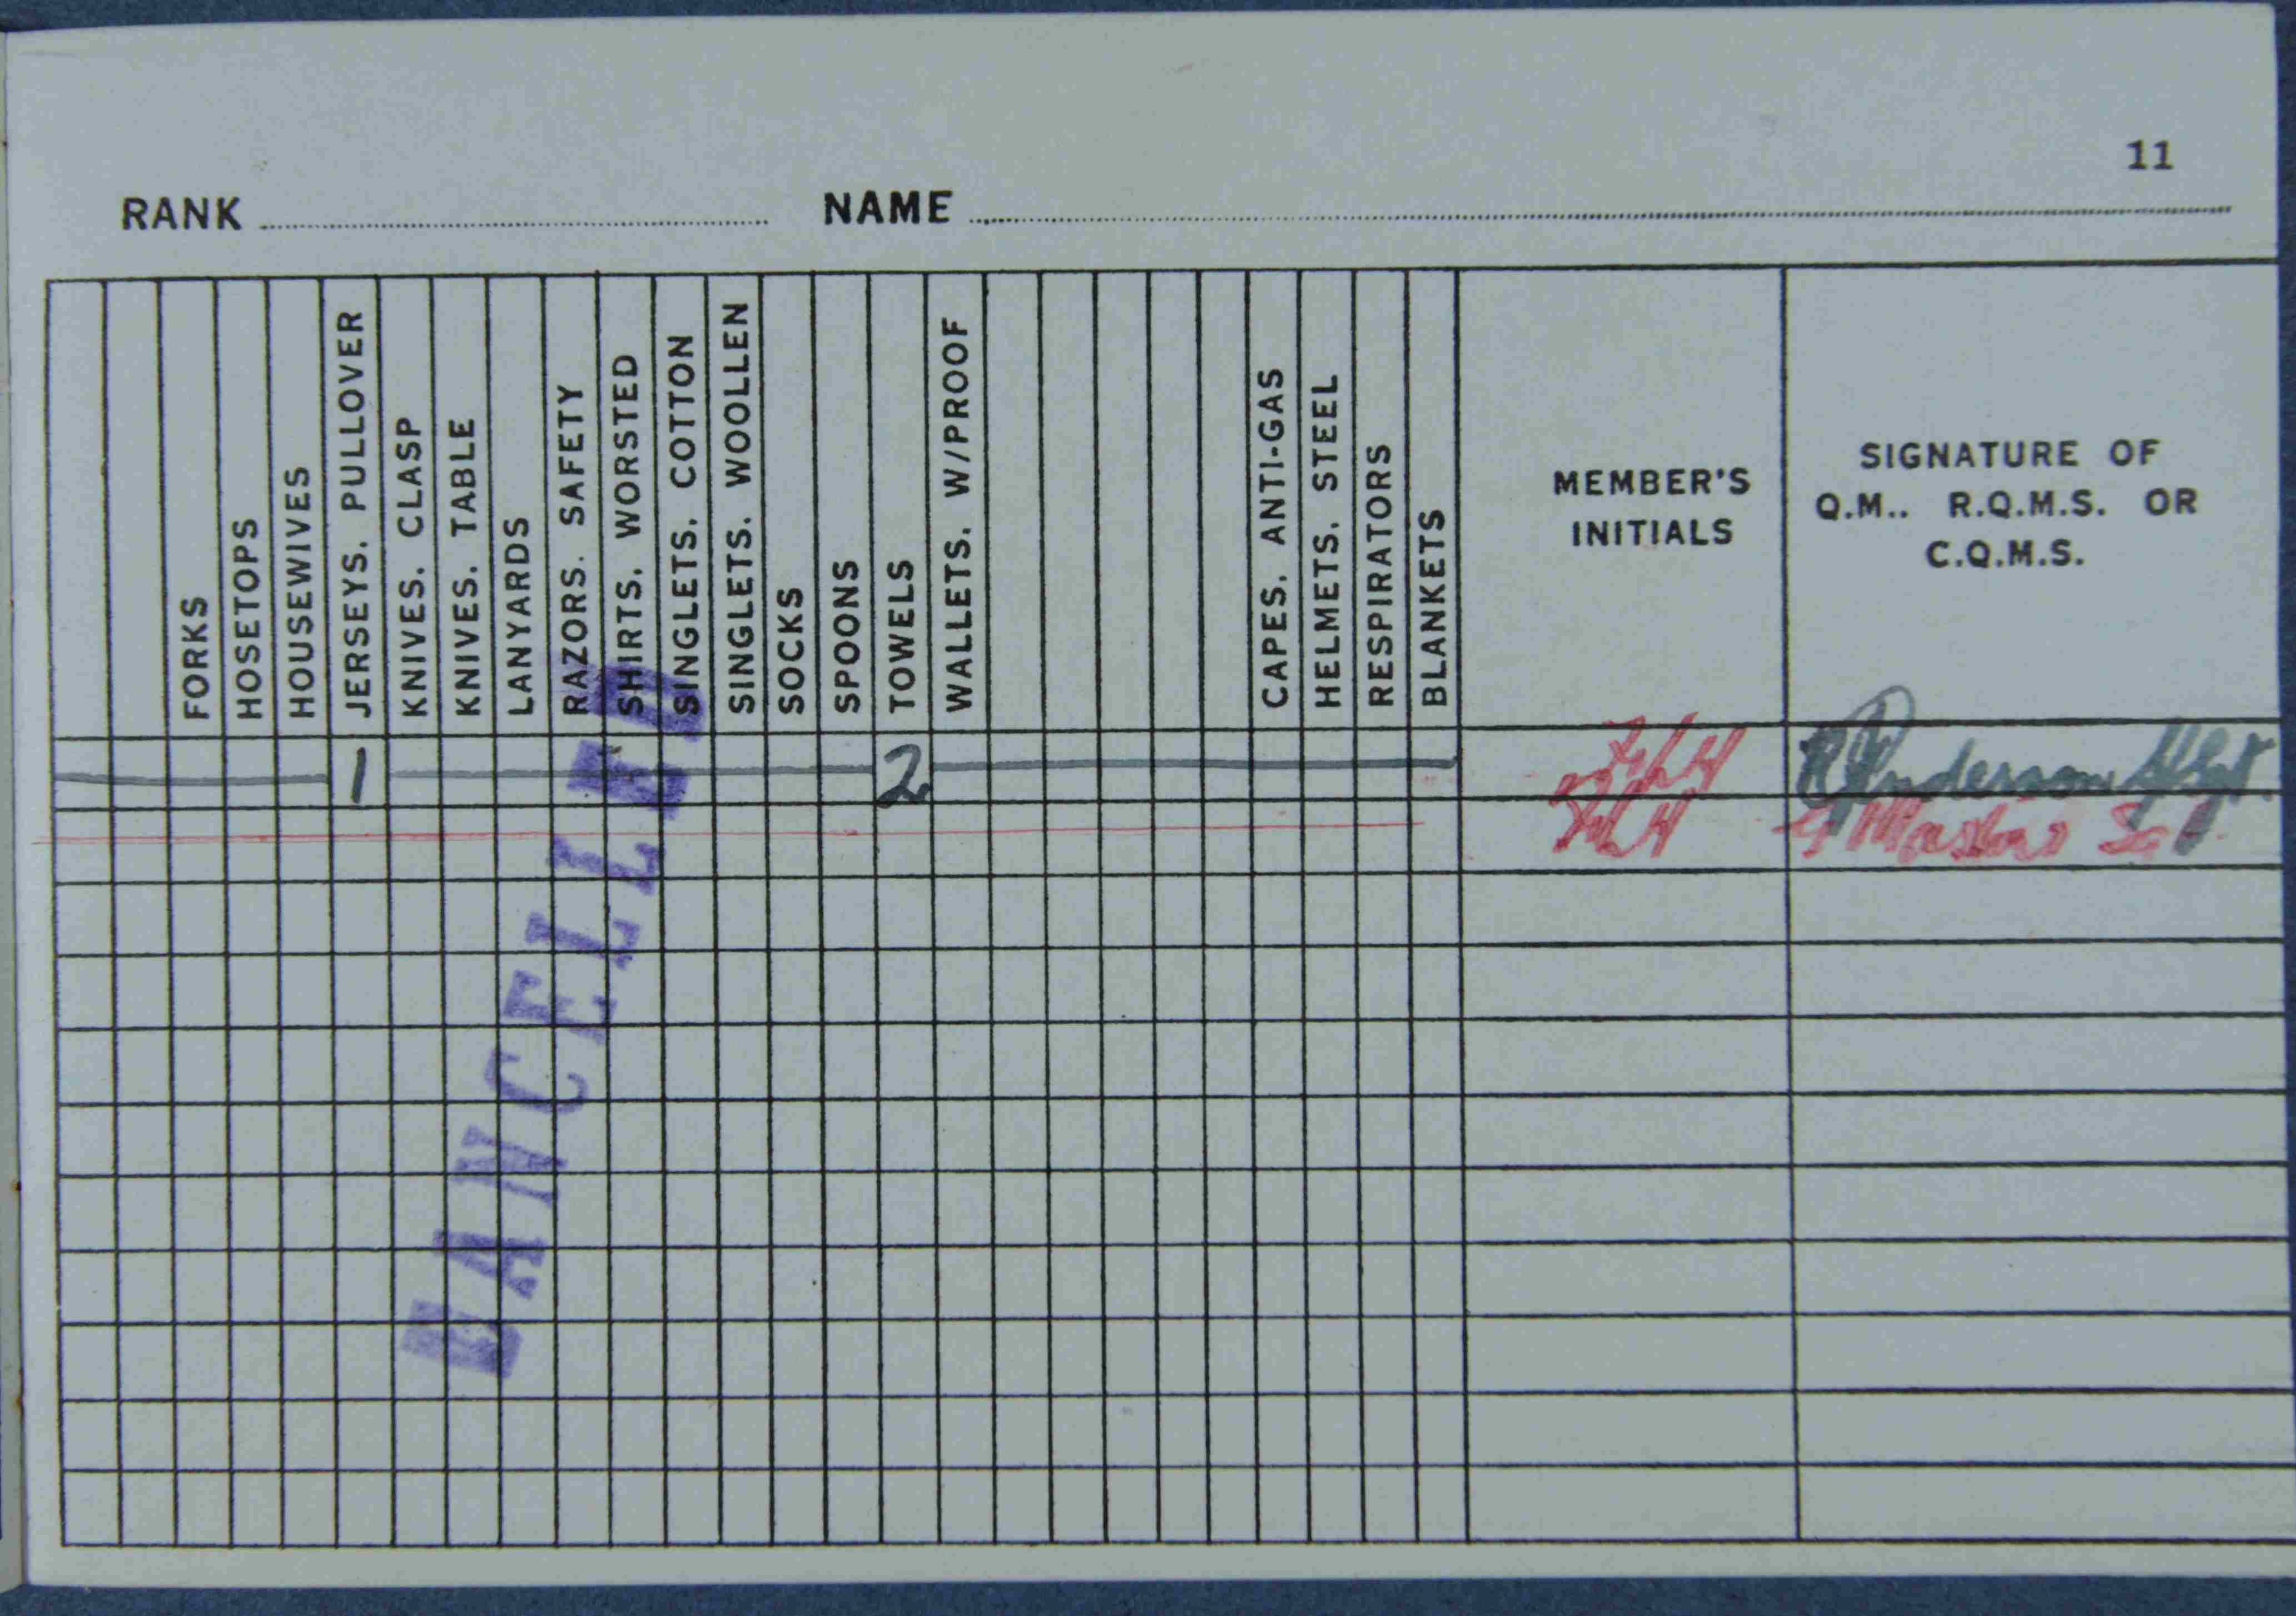 11
RANK NAME
FORKS
HOSETOPS
HOUSEWIVES
JERSEYS. PULLOVER
KNIVES. CLASP
KNIVES. TABLE
LANYARDS
RAZORS. SAFETY
SHIRTS. WORSTED
SINGLETS. COTTON
SINGLETS. WOOLLEN
SOCKS
SPOONS
TOWELS
WALLETS. W/PROOF
CAPES. ANTI-GAS
HELMETS. STEEL
RESPIRATORS
BLANKETS
MEMBER'S
INITIALS
SIGNATURE OF
Q.M.. R.Q.M.S. OR
C.Q.M.S.
1 2 Anderson
CANCELLED